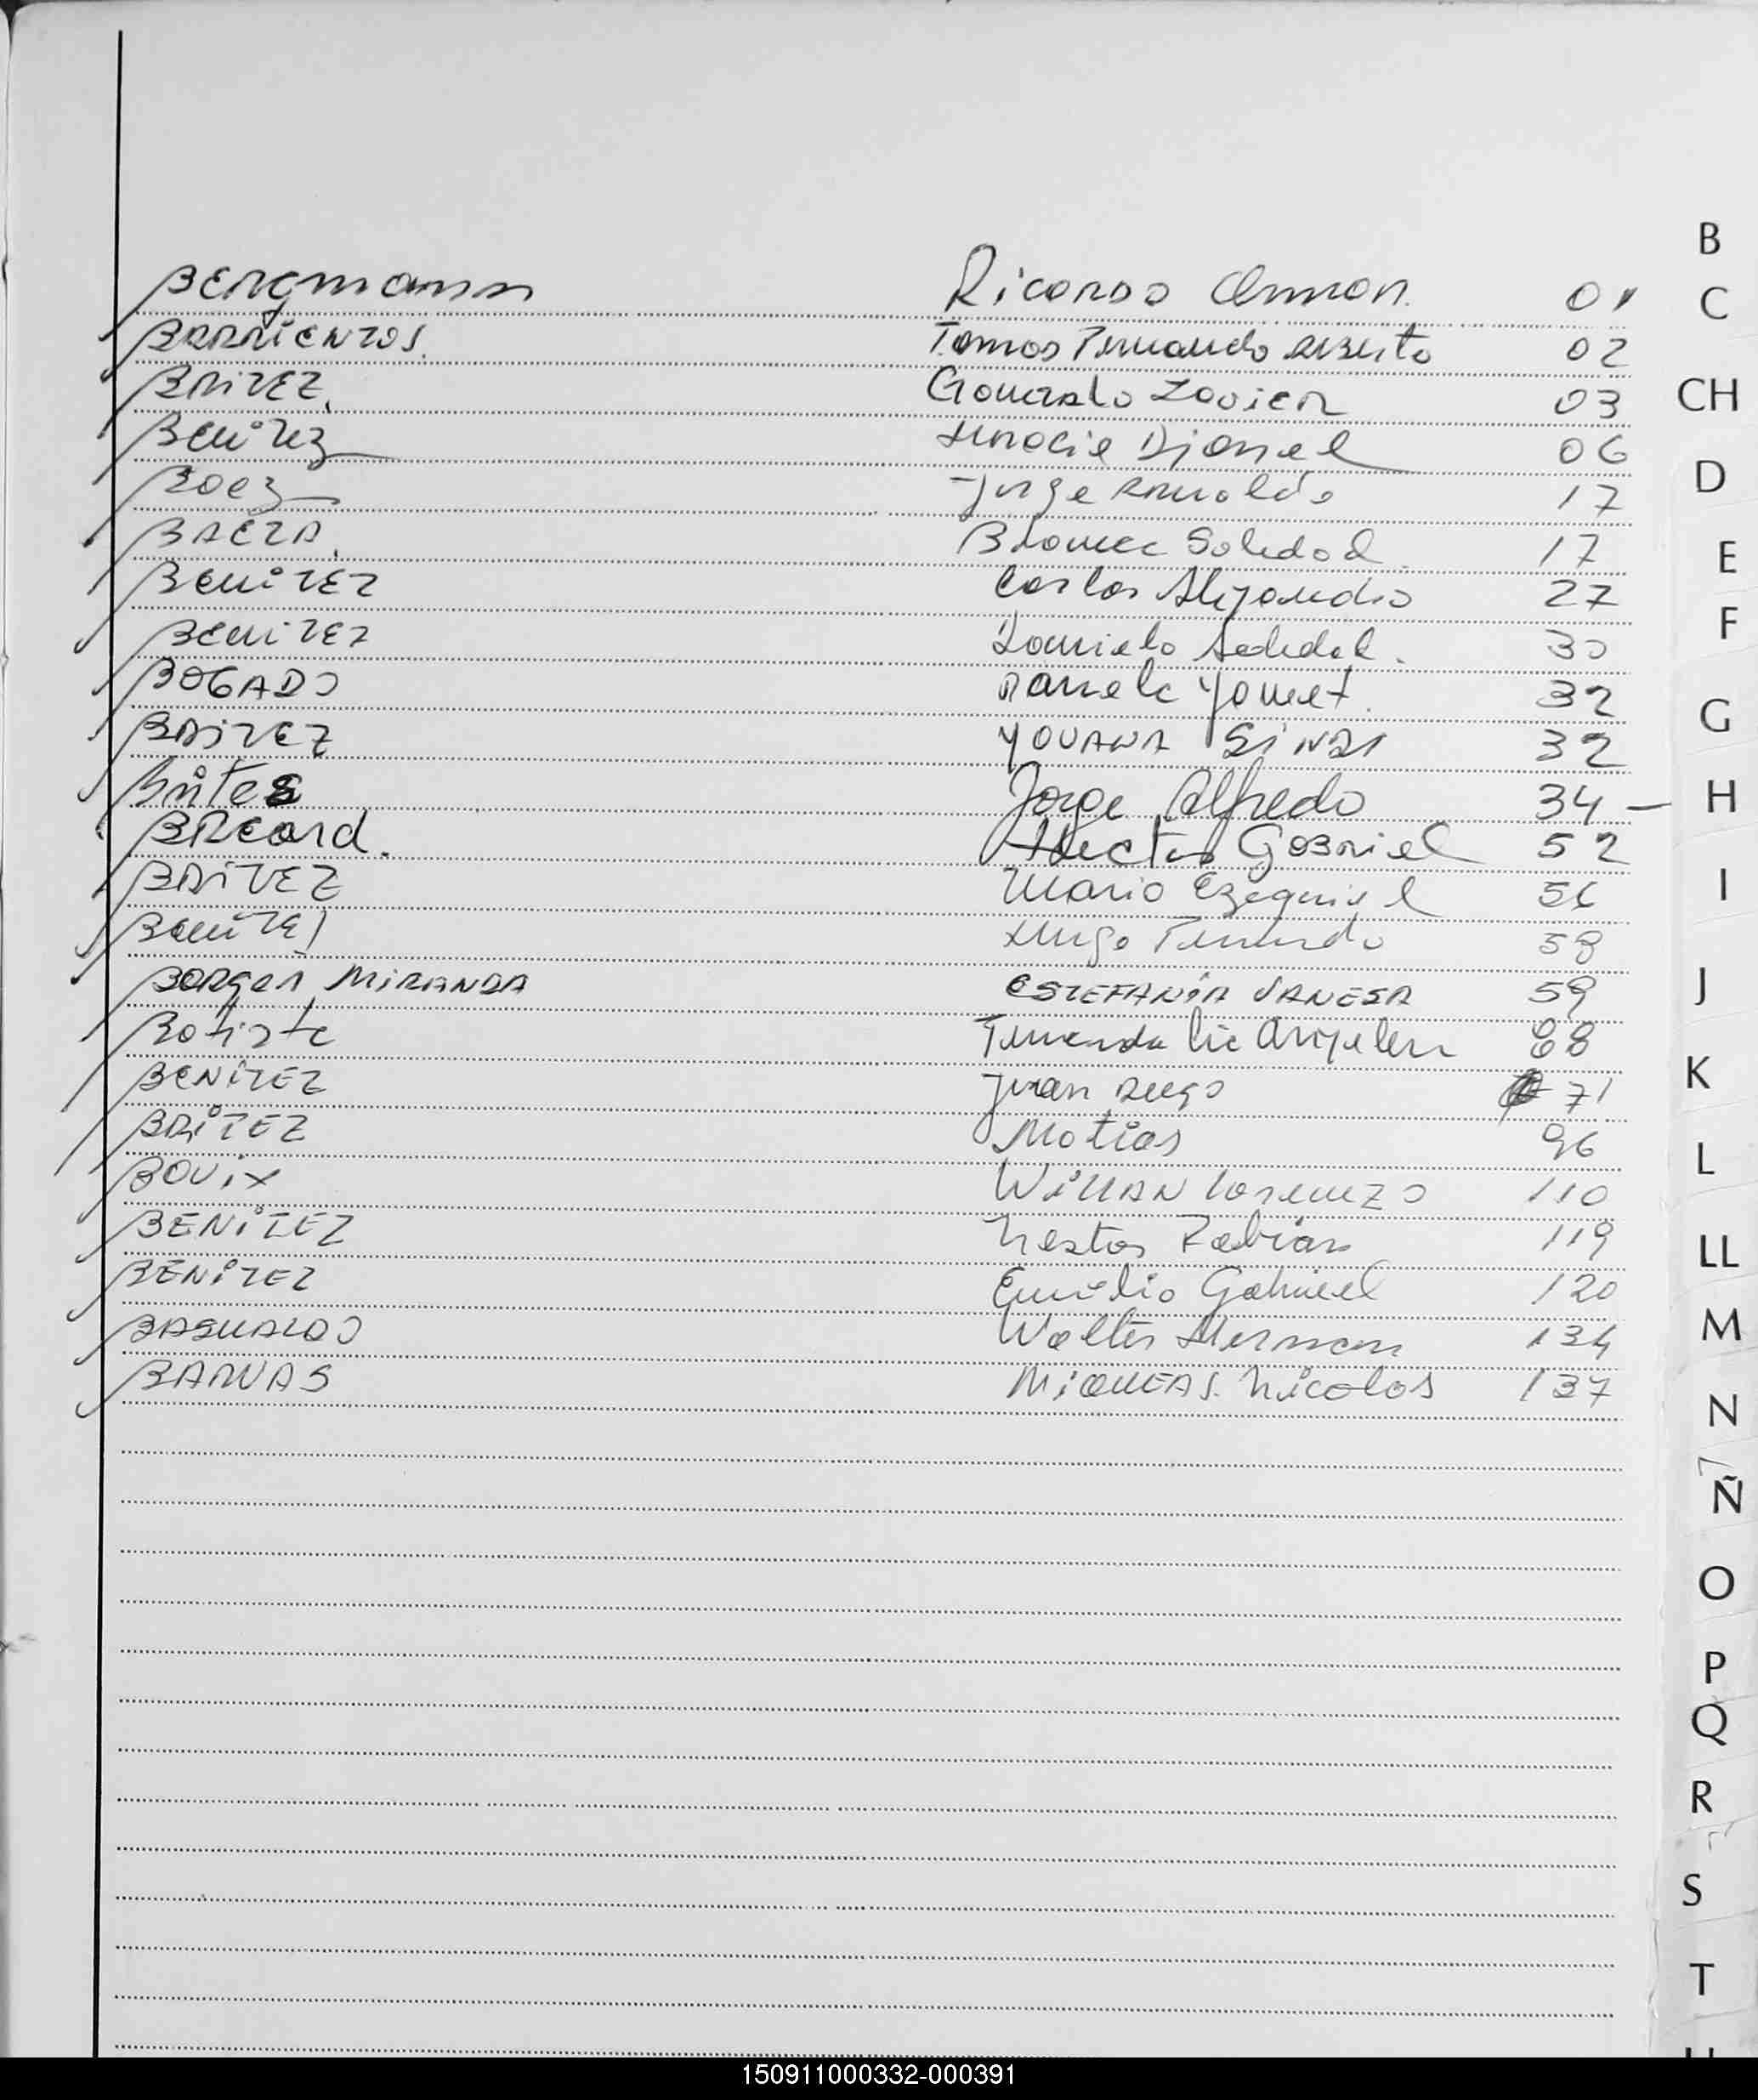 Bergmann Ricardo Omar 01
BARRIENTOS. Tomas Fernando Alberto 02
BRITEZ. Gonzalo Javier 03
Benitez Dionel 06
Baez Jorge Arnoldo 17
BAEZA. Blanca Soledad. 17
BENITEZ Carlos Alejandro 27
BENITEZ 30
BOGADO Daniela Yamet. 32
BRITEZ YOUANA 32
Brites Jorge Alfredo 34 —
BREard. Hector Gabriel 52
BRITEZ Mario Ezequiel 56
Benitez Hugo Fernando 58
BORges MIRANDA ESTEFANÍA VANESA 59
Batista Fernanda 68
BENITEZ Juan Diego 71
BRITEZ Matias 96
BOVIX WILLIAN Lorenzo 110
BENITEZ Nestor Fabian 119
BENITEZ Emilio Gabriel 120
BASUALDO Walter Hernan 134
BARUAS MIQUEAS Nicolas 137
B
C
CH
D
E
F
G
H
I
J
K
L
LL
M
N
Ñ
O
P
Q
R
S
T
150911000332-000391